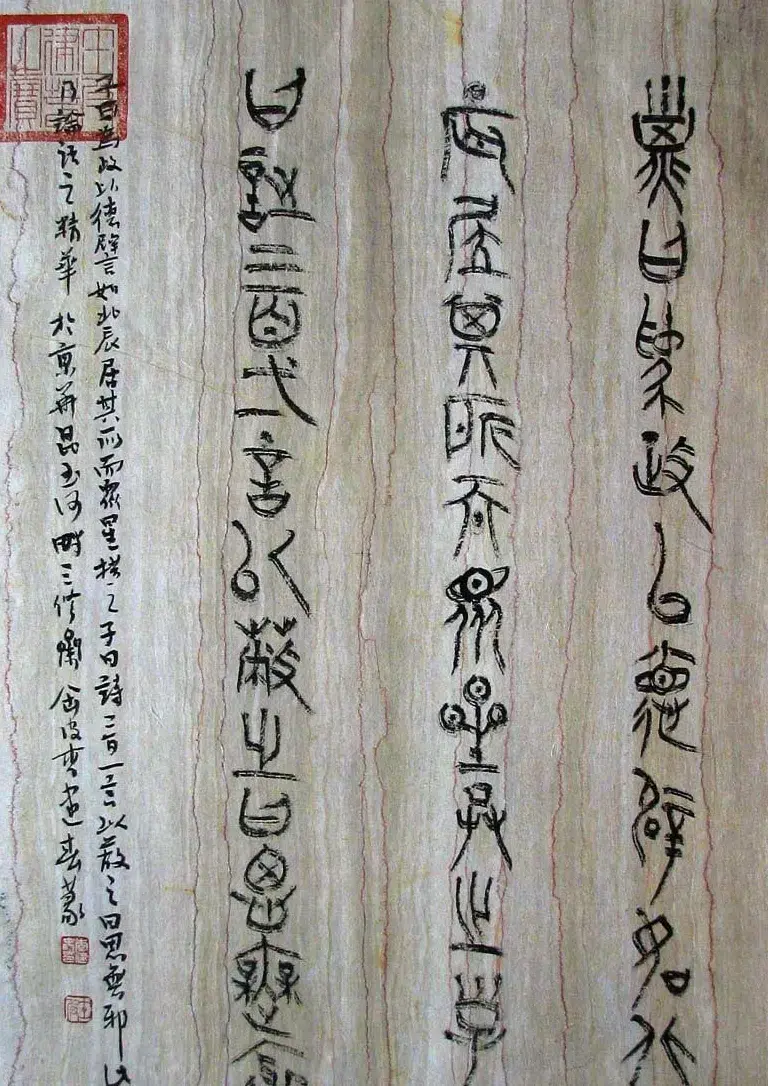 子曰為政以德辟如北
辰居其所而眾星共之子
曰詩三百弌言以蔽之曰思無邪
子曰為政以德譬如北辰居其所而眾星拱之子曰詩三百一言以蔽之曰思無邪此
乃論語之精華 於京華昆玉河畔三 春篆